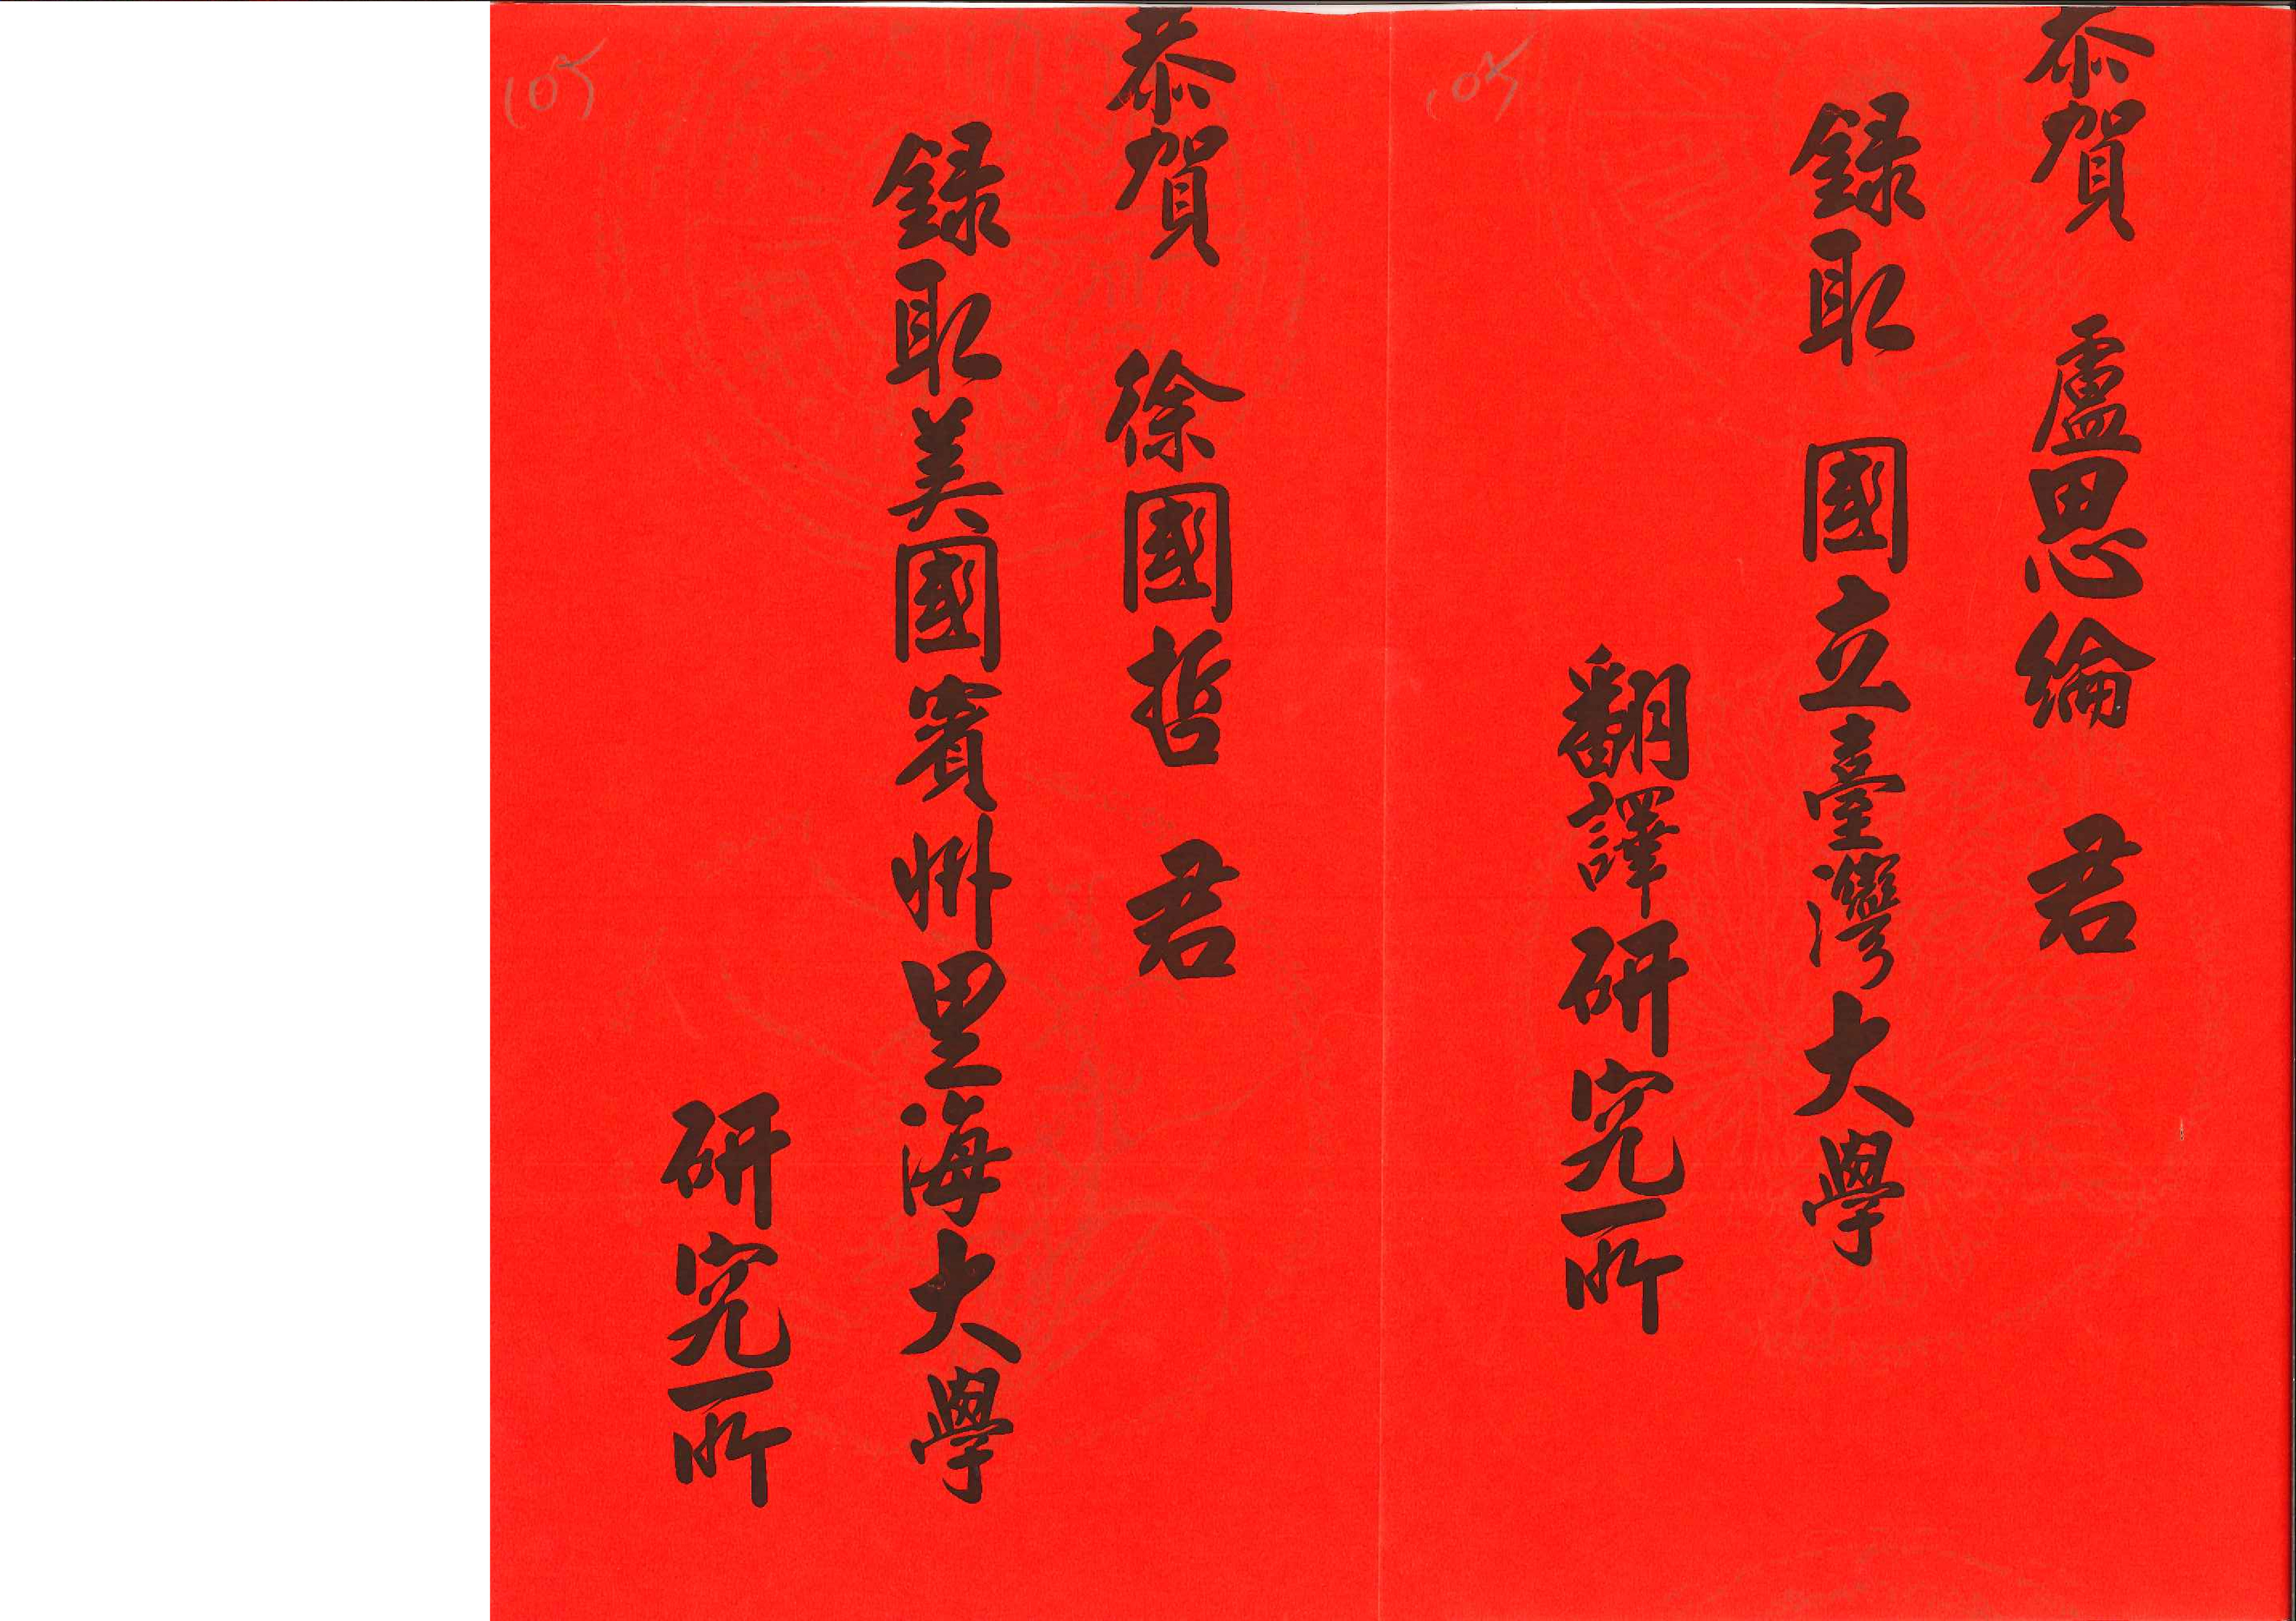 恭賀 盧思綸 君
録取 國立臺灣大學
翻譯研究所
105
恭賀 徐國哲 君
録取美國賓州里海大學
研究所
105